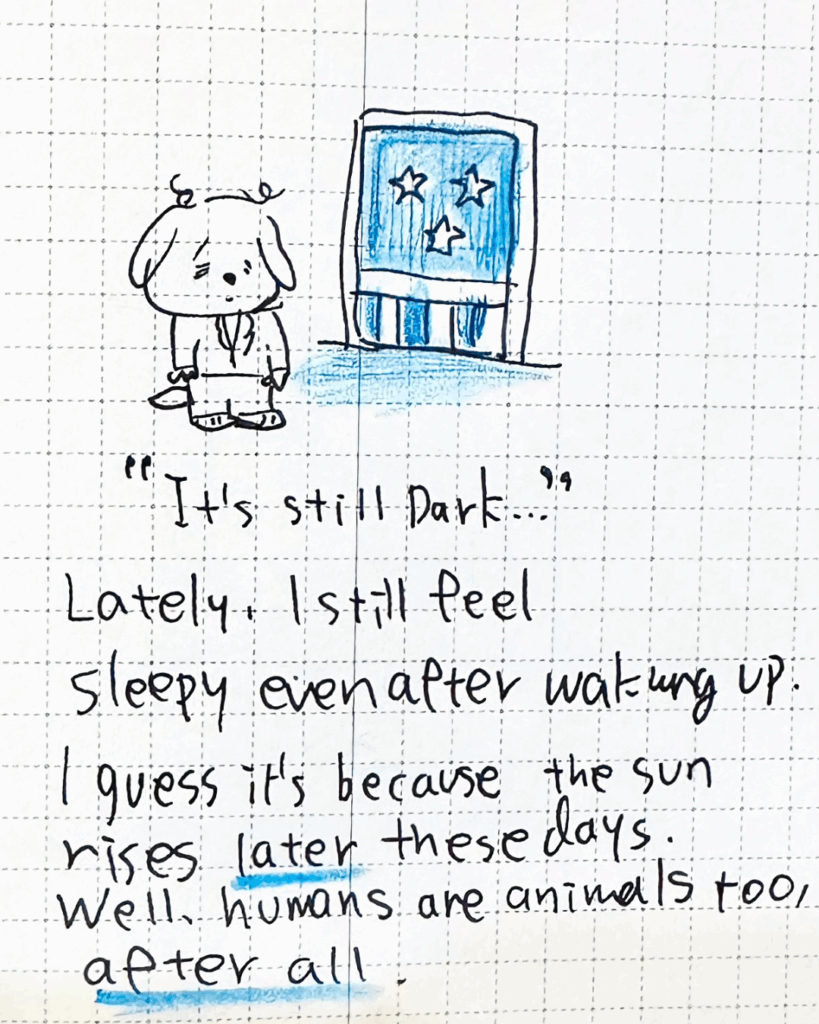 "It's still Dark..."
Lately, I still feel
sleepy even after waking up.
I guess it's because the sun
rises later these days.
Well, humans are animals too,
after all.